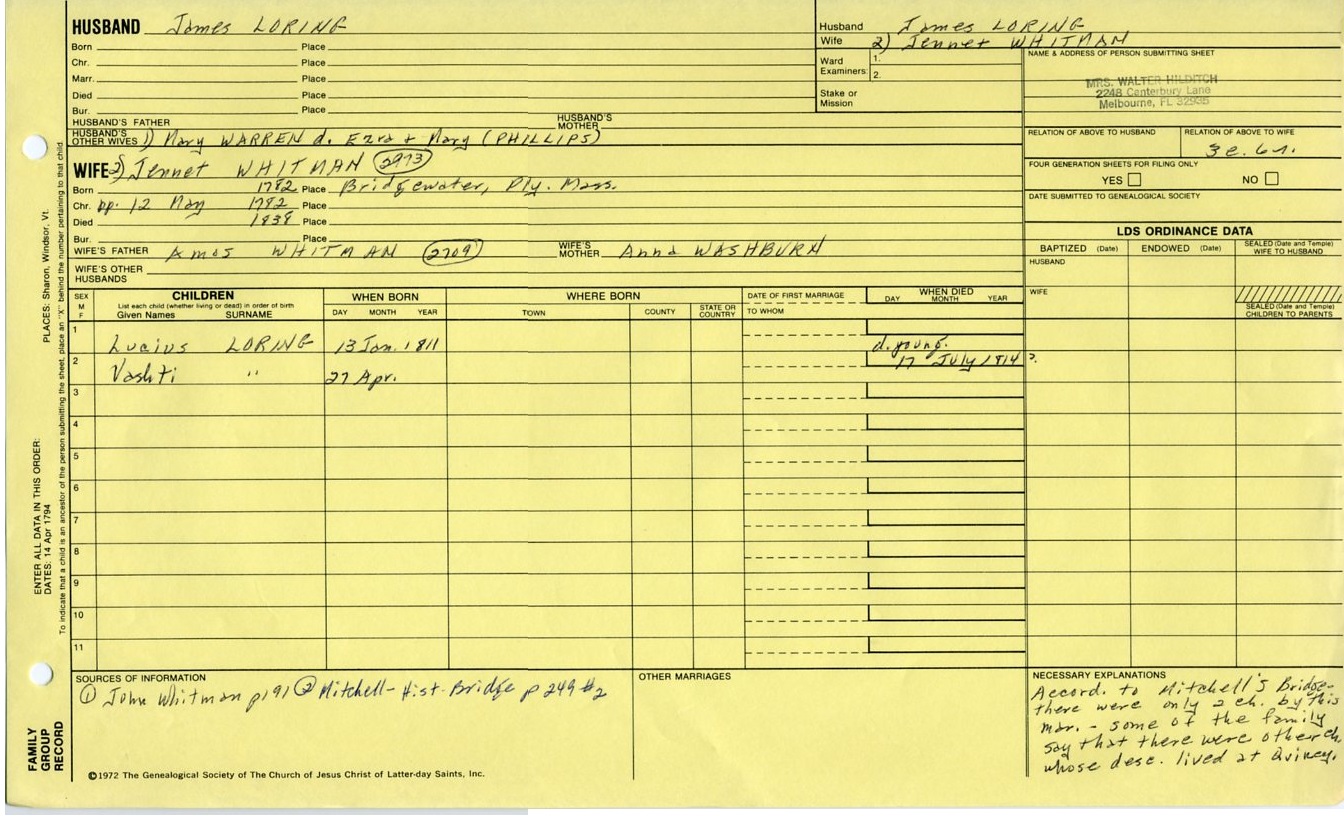 HUSBAND James LORING
Born Place
Chr. Place
Marr. Place
Died Place
Bur. Place
HUSBAND'S FATHER HUSBAND'S MOTHER
HUSBAND'S OTHER WIVES 1) Mary WARREN d. Ezra + Mary (PHILLIPS)
WIFE 2) Jennet WHITMAN 2973
Born 1782 Place Bridgewater, Ply. Mass.
Chr. bp. 12 May 1782 Place
Died 1838 Place
Bur. Place
WIFE'S FATHER Amos WHITMAN 2709 WIFE'S MOTHER Anna WASHBURN
WIFE'S OTHER HUSBANDS
Husband James LORING
Wife 2) Jennet WHITMAN
Ward Examiners: 1.
2.
Stake or Mission
NAME & ADDRESS OF PERSON SUBMITTING SHEET
MRS. WALTER HILDITCH
2248 Canterbury Lane
Melbourne, FL 32935
RELATION OF ABOVE TO HUSBAND RELATION OF ABOVE TO WIFE
3c. 6r.
FOUR GENERATION SHEETS FOR FILING ONLY
YES NO
DATE SUBMITTED TO GENEALOGICAL SOCIETY
LDS ORDINANCE DATA
BAPTIZED (Date) ENDOWED (Date) SEALED (Date and Temple) WIFE TO HUSBAND
HUSBAND
WIFE
SEALED (Date and Temple) CHILDREN TO PARENTS
SEX M F
CHILDREN
List each child (whether living or dead) in order of birth
Given Names SURNAME
WHEN BORN
DAY MONTH YEAR
WHERE BORN
TOWN COUNTY STATE OR COUNTRY
DATE OF FIRST MARRIAGE
TO WHOM
WHEN DIED
DAY MONTH YEAR
1 Lucius LORING 13 Jan. 1811 d. young.
2 Vashti " 27 Apr. 17 July 1814 ?.
3
4
5
6
7
8
9
10
11
SOURCES OF INFORMATION
① John Whitman p191 ② Mitchell-Hist. Bridge p 249 #2
OTHER MARRIAGES
NECESSARY EXPLANATIONS
Accord. to Mitchell's Bridge-
there were only 2 ch. by this
mar. - some of the family
say that there were other ch.
whose desc. lived at Quincy.
©1972 The Genealogical Society of The Church of Jesus Christ of Latter-day Saints, Inc.
FAMILY GROUP RECORD
ENTER ALL DATA IN THIS ORDER:
DATES: 14 Apr 1794
PLACES: Sharon, Windsor, Vt.
To indicate that a child is an ancestor of the person submitting the sheet, place an "X" behind the number pertaining to that child.